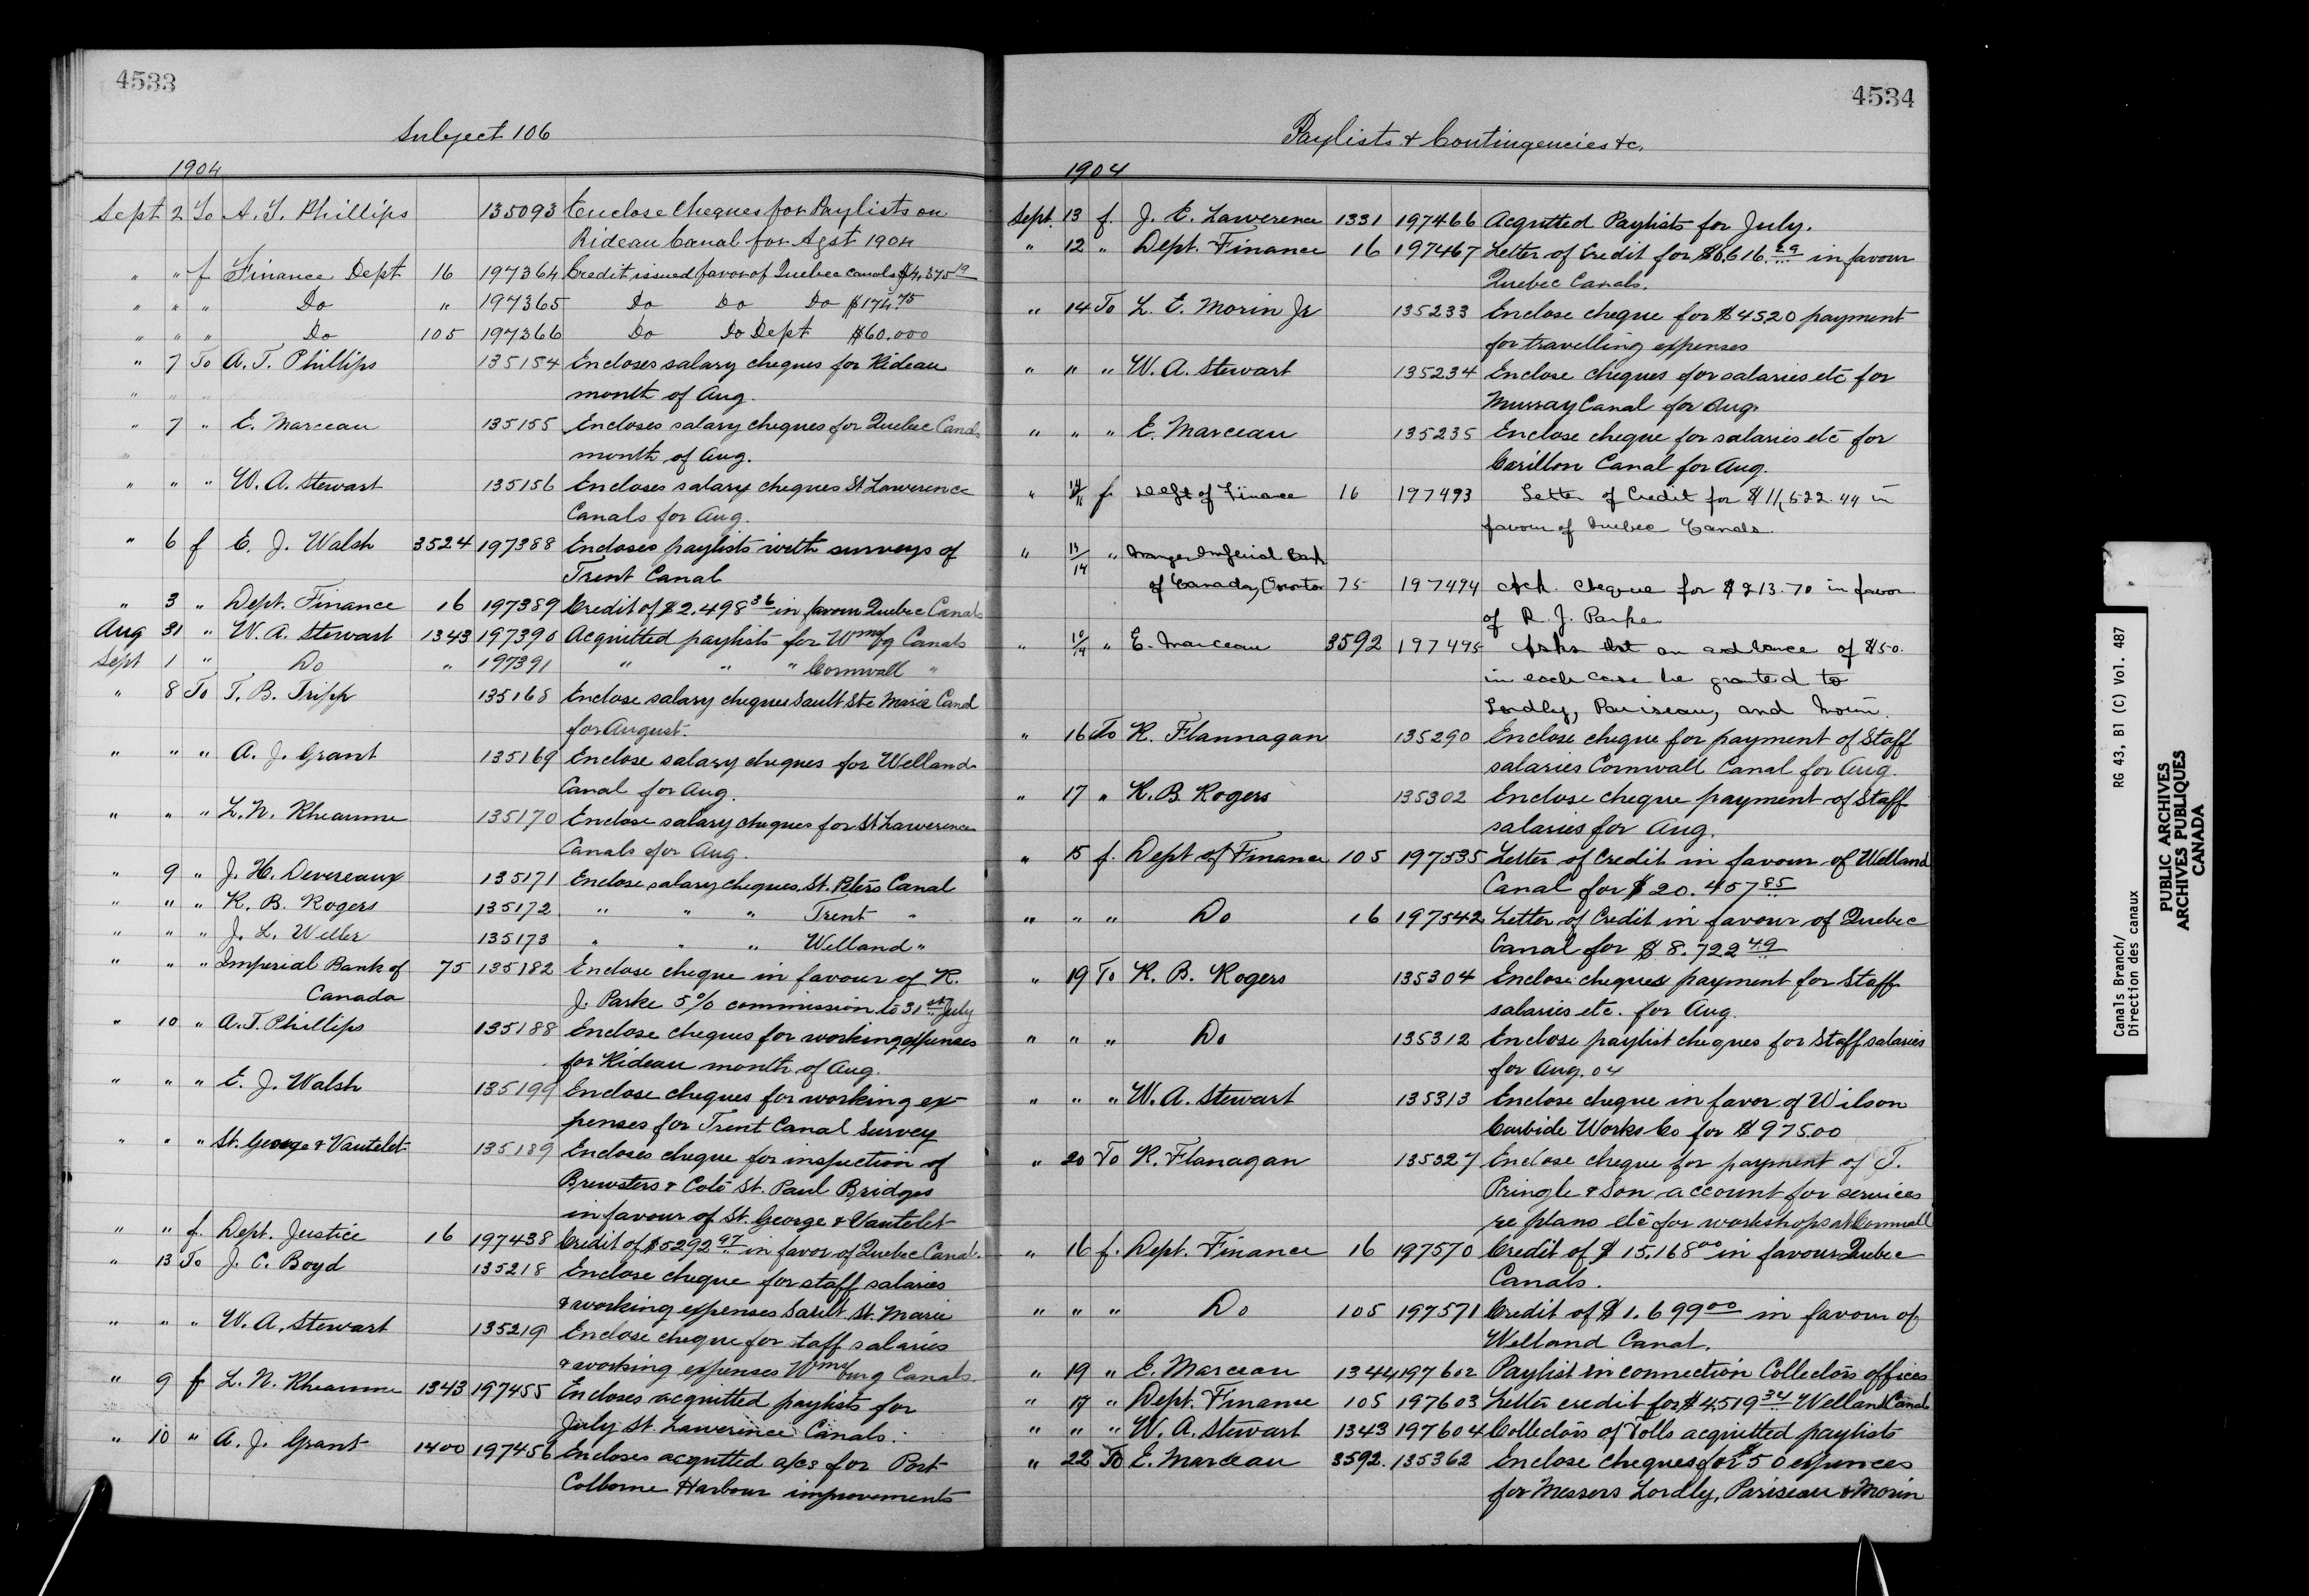 4533
Subject 106
1904
Sept 2 To A. T. Phillips 135093 Enclose Cheques for Paylists on
Rideau Canal for Agst 1904
" " f Finance Dept 16 197364 Credit issued favor of Quebec Canals $4,375 19
" " " Do " 197365 Do Do Do $174.75
" " " Do 105 197366 Do Do Dept $60.000
" 7 To A. T. Phillips 135154 Encloses salary cheques for Rideau
" " "
month of Aug.
" 7 " E. Marceau 135155 Encloses salary cheques for Quebec Canals
month of Aug.
" " " W. A. Stewart 135156 Encloses salary cheques St Lawerence
Canals for Aug.
" 6 f E. J. Walsh 3524 197388 Encloses paylists with surveys of
Trent Canal
" 3 " Dept. Finance 16 197389 Credit of $2.498 36 in favour Quebec Canals
Aug 31 " W. A. Stewart 1343 197390 Acquitted paylists for Wmsbg Canals
Sept 1 " Do " 197391 " " " Cornwall "
" 8 To T. B. Tripp 135168 Enclose salary cheques Sault Ste Marie Canal
for August.
" " " A. J. Grant 135169 Enclose salary cheques for Welland
Canal for Aug.
" " " L. N. Rheaume 135170 Enclose salary cheques for St Lawerence
Canals for Aug.
" 9 " J. H. Devereaux 135171 Enclose salary cheques St. Peters Canal
" " " K. B. Rogers 135172 " " " Trent "
" " " J. L. Weller 135173 " " " Welland "
" " " Imperial Bank of 75 135182 Enclose cheque in favour of R.
Canada J. Parke 5% commission to 31st July
" 10 " A. T. Phillips 135188 Enclose cheques for working expenses
for Rideau month of Aug.
" " " E. J. Walsh 135199 Enclose cheques for working ex-
penses for Trent Canal Survey
" " " St. George & Vautelet 135189 Encloses cheque for inspection of
Brewsters & Coté St. Paul Bridges
in favour of St. George & Vautelet
" " f. Dept. Justice 16 197438 Credit of $5292 97 in favor of Quebec Canal.
" 13 To J. C. Boyd 135218 Enclose cheque for staff salaries
& working expenses Sault St. Marie
" " " W. A. Stewart 135219 Enclose cheque for taff salaries
& working expenses Wmsburg Canals
" 9 f L. N. Rheaume 1343 197455 Encloses acquitted paylists for
July St. Lawerince Canals.
" 10 " A. J. Grant 1400 197456 Encloses acquitted a/cs for Port
Colborne Harbour improvements
4534
Paylists & Contingencies &c.
1904
Sept. 13 f. J. E. Lawerence 1331 197466 Acqutted Paylists for July.
" 12 " Dept. Finance 16 197467 Letter of Credit for $8,616.29 in favour
Quebec Canals.
" 14 To L. E. Morin Jr 135233 Enclose cheque for $4520 payment
for travelling expenses
" " " W. A. Stewart 135234 Enclose cheques for salaries etc for
Murray Canal for Aug.
" " " E. Marceau 135235 Enclose cheque for salaries etc for
Carillon Canal for Aug.
" f. Dept of Finance 16 197493 Letter of Credit for $11,522.44 in
favour of Quebec Canals.
" 13/14 " Manger Imperial Bank
of Canada, Toronto 75 197494 Ack. Cheque for $213.70 in favor
of R. J. Parke
" 10/14 " E. Marceau 3592 197495 Asks that an advance of $50.
in each case be granted to
Lordly, Pariseau, and Morin.
" 16 To K. Flannagan 135290 Enclose cheque for payment of Staff
salaries Cornwall Canal for Aug.
" 17 " K. B. Rogers 135302 Enclose cheque payment of Staff
salaries for Aug.
" 15 f. Dept of Finance 105 197535 Letter of Credit in favour of Welland
Canal for $20.457 85
" " " Do 16 197542 Letter of Credit in favour of Quebec
Canal for $8.722 49
" 19 To K. B. Rogers 135304 Enclose cheques payment for Staff
salaries etc. for Aug.
" " " Do 135312 Enclose paylist cheques for Staff salaries
for Aug. 04
" " " W. A. Stewart 135313 Enclose cheque in favor of Wilson
Carbide Works Co for $975.00
" 20 To K. Flanagan 135327 Enclose cheque for payment of T.
Pringle & Son account for services
re plans etc for workshops at Cornwall
" 16 f. Dept. Finance 16 197570 Credit of $15,168 00 in favour Quebec
Canals.
" " " Do 105 197571 Credit of $1.699 00 in favour of
Welland Canal.
" 19 " E. Marceau 1344 197602 Paylist in connection Collectors offices
" 17 " Dept. Finance 105 197603 Letter credit for $4,519 34 Welland Canal
" " " W. A. Stewart 1343 197604 Collectors of Tolls acquitted paylists
" 22 To E. Marceau 3592. 135362 Enclose cheques for $50 expences
for Messers Lordly, Pariseau & Morin
Canals Branch/ RG 43, B1 (C) Vol. 487
Direction des canaux
PUBLIC ARCHIVES
ARCHIVES PUBLIQUES
CANADA